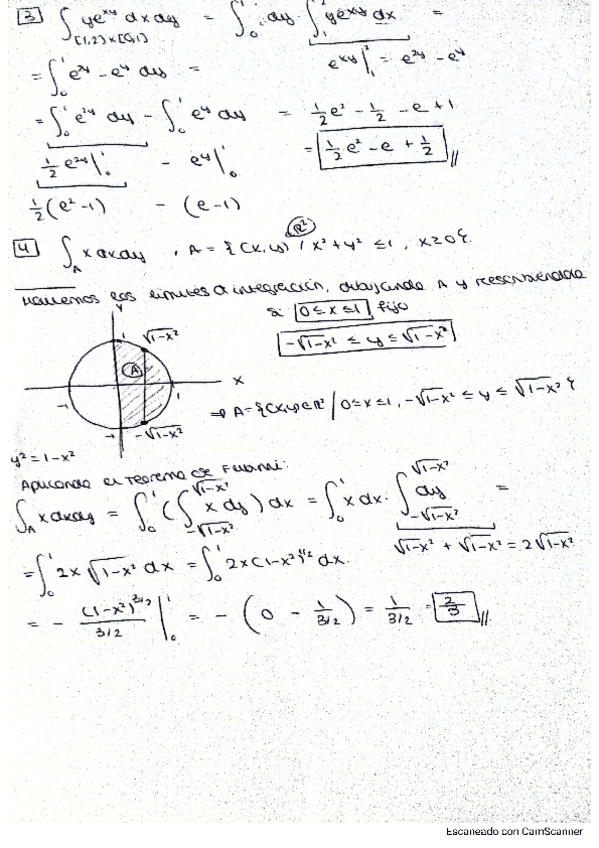 3 ∫_{[1,2]×[0,1]} ye^{xy} dxdy = ∫_0^1 dy · ∫_1^2 ye^{xy} dx =
e^{xy}|_1^2 = e^{2y} - e^y
= ∫_0^1 e^{2y} - e^y dy =
= ∫_0^1 e^{2y} dy - ∫_0^1 e^y dy = 1/2 e^2 - 1/2 - e + 1
1/2 e^{2y}|_0^1 - e^y|_0^1 = 1/2 e^2 - e + 1/2 //
1/2 (e^2 - 1) - (e - 1)
4 ∫_A x dxdy , A = {(x,y) ∈ ℝ^2 / x^2 + y^2 ≤ 1, x ≥ 0}.
Hallemos los límites de integración, dibujando A y reescribiéndola
Y
1
√1-x^2
A
x
-1
1
-1
-√1-x^2
y^2 = 1 - x^2
Si 0 ≤ x ≤ 1 fijo
-√1-x^2 ≤ y ≤ √1-x^2
⇒ A = {(x,y) ∈ ℝ^2 / 0 ≤ x ≤ 1, -√1-x^2 ≤ y ≤ √1-x^2}
Aplicando el Teorema de Fubini:
∫_A x dxdy = ∫_0^1 (∫_{-√1-x^2}^{√1-x^2} x dy) dx = ∫_0^1 x dx · ∫_{-√1-x^2}^{√1-x^2} dy =
√1-x^2 + √1-x^2 = 2√1-x^2
= ∫_0^1 2x √1-x^2 dx = ∫_0^1 2x (1-x^2)^{1/2} dx.
= - (1-x^2)^{3/2} / 3/2 |_0^1 = - (0 - 1/3/2) = 1/3/2 = 2/3 //
Escaneado con CamScanner